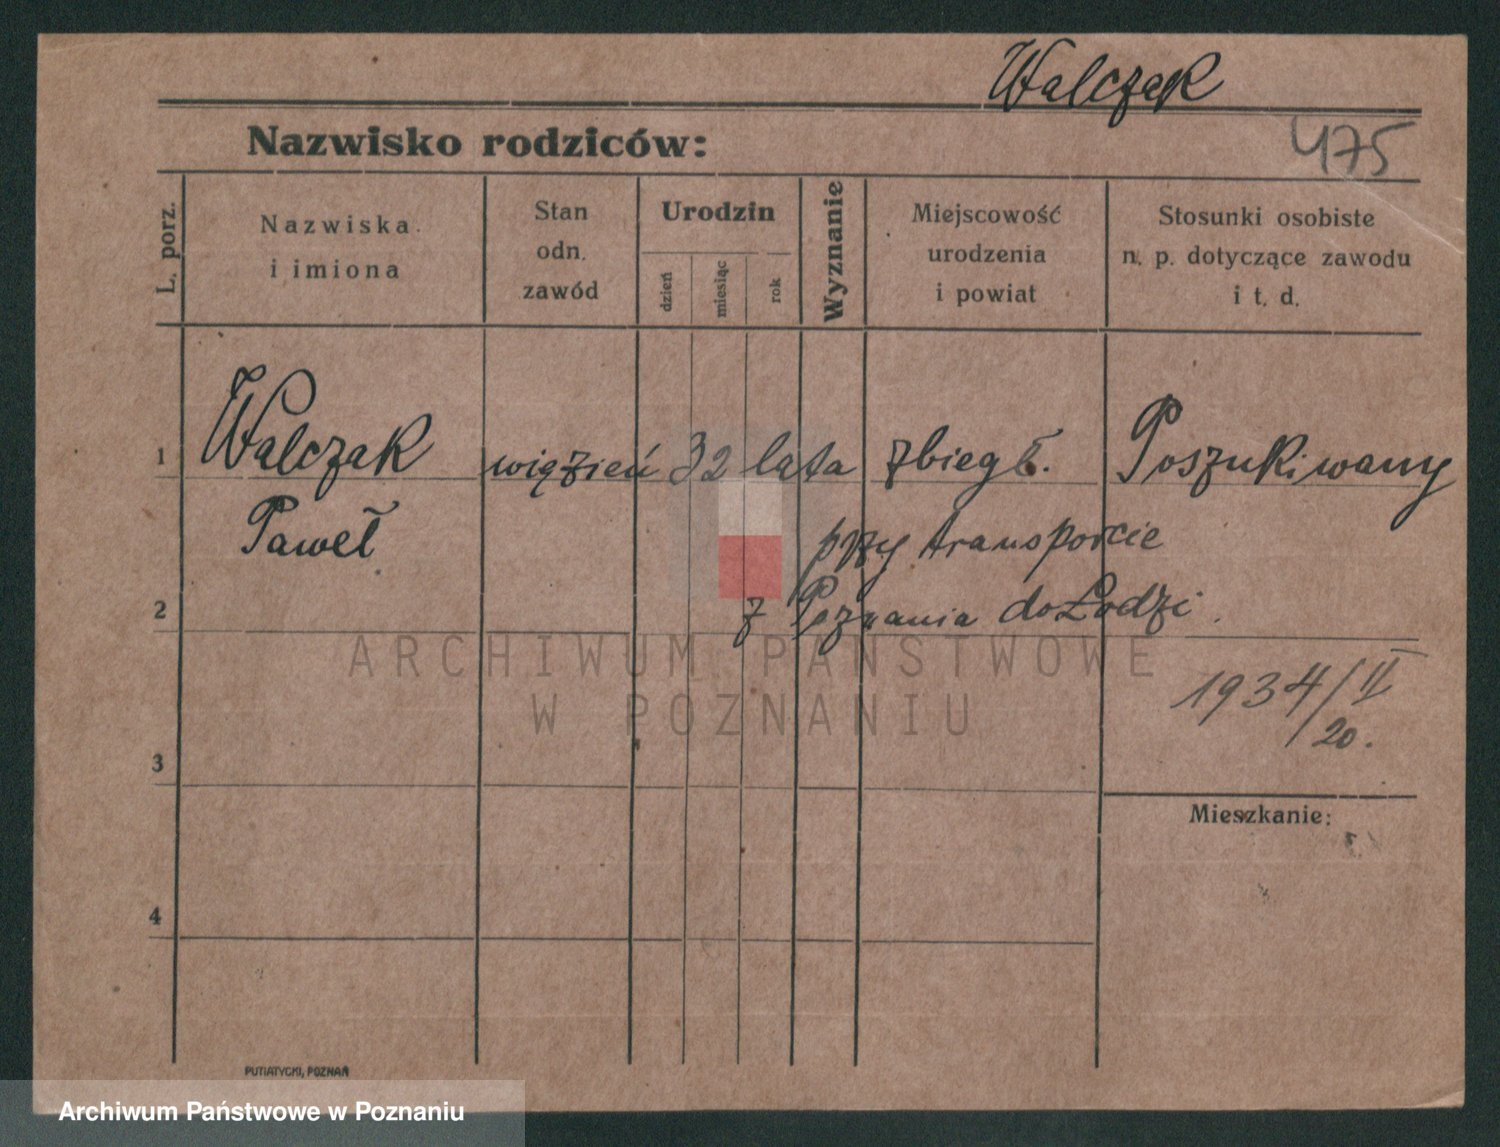 Walczak
Nazwisko rodziców:
475
L. porz.
Nazwiska
i imiona
Stan
odn.
zawód
Urodzin
dzień
miesiąc
rok
Wyznanie
Miejscowość
urodzenia
i powiat
Stosunki osobiste
n. p. dotyczące zawodu
i t. d.
1 Walczak więzień 32 lata zbiegł. Poszukiwany
Paweł przy transporcie
2 z Poznania do Łodzi.
ARCHIWUM PAŃSTWOWE
W POZNANIU
1934/II
20.
3
Mieszkanie:
4
PUTIATYCKI, POZNAŃ
Archiwum Państwowe w Poznaniu